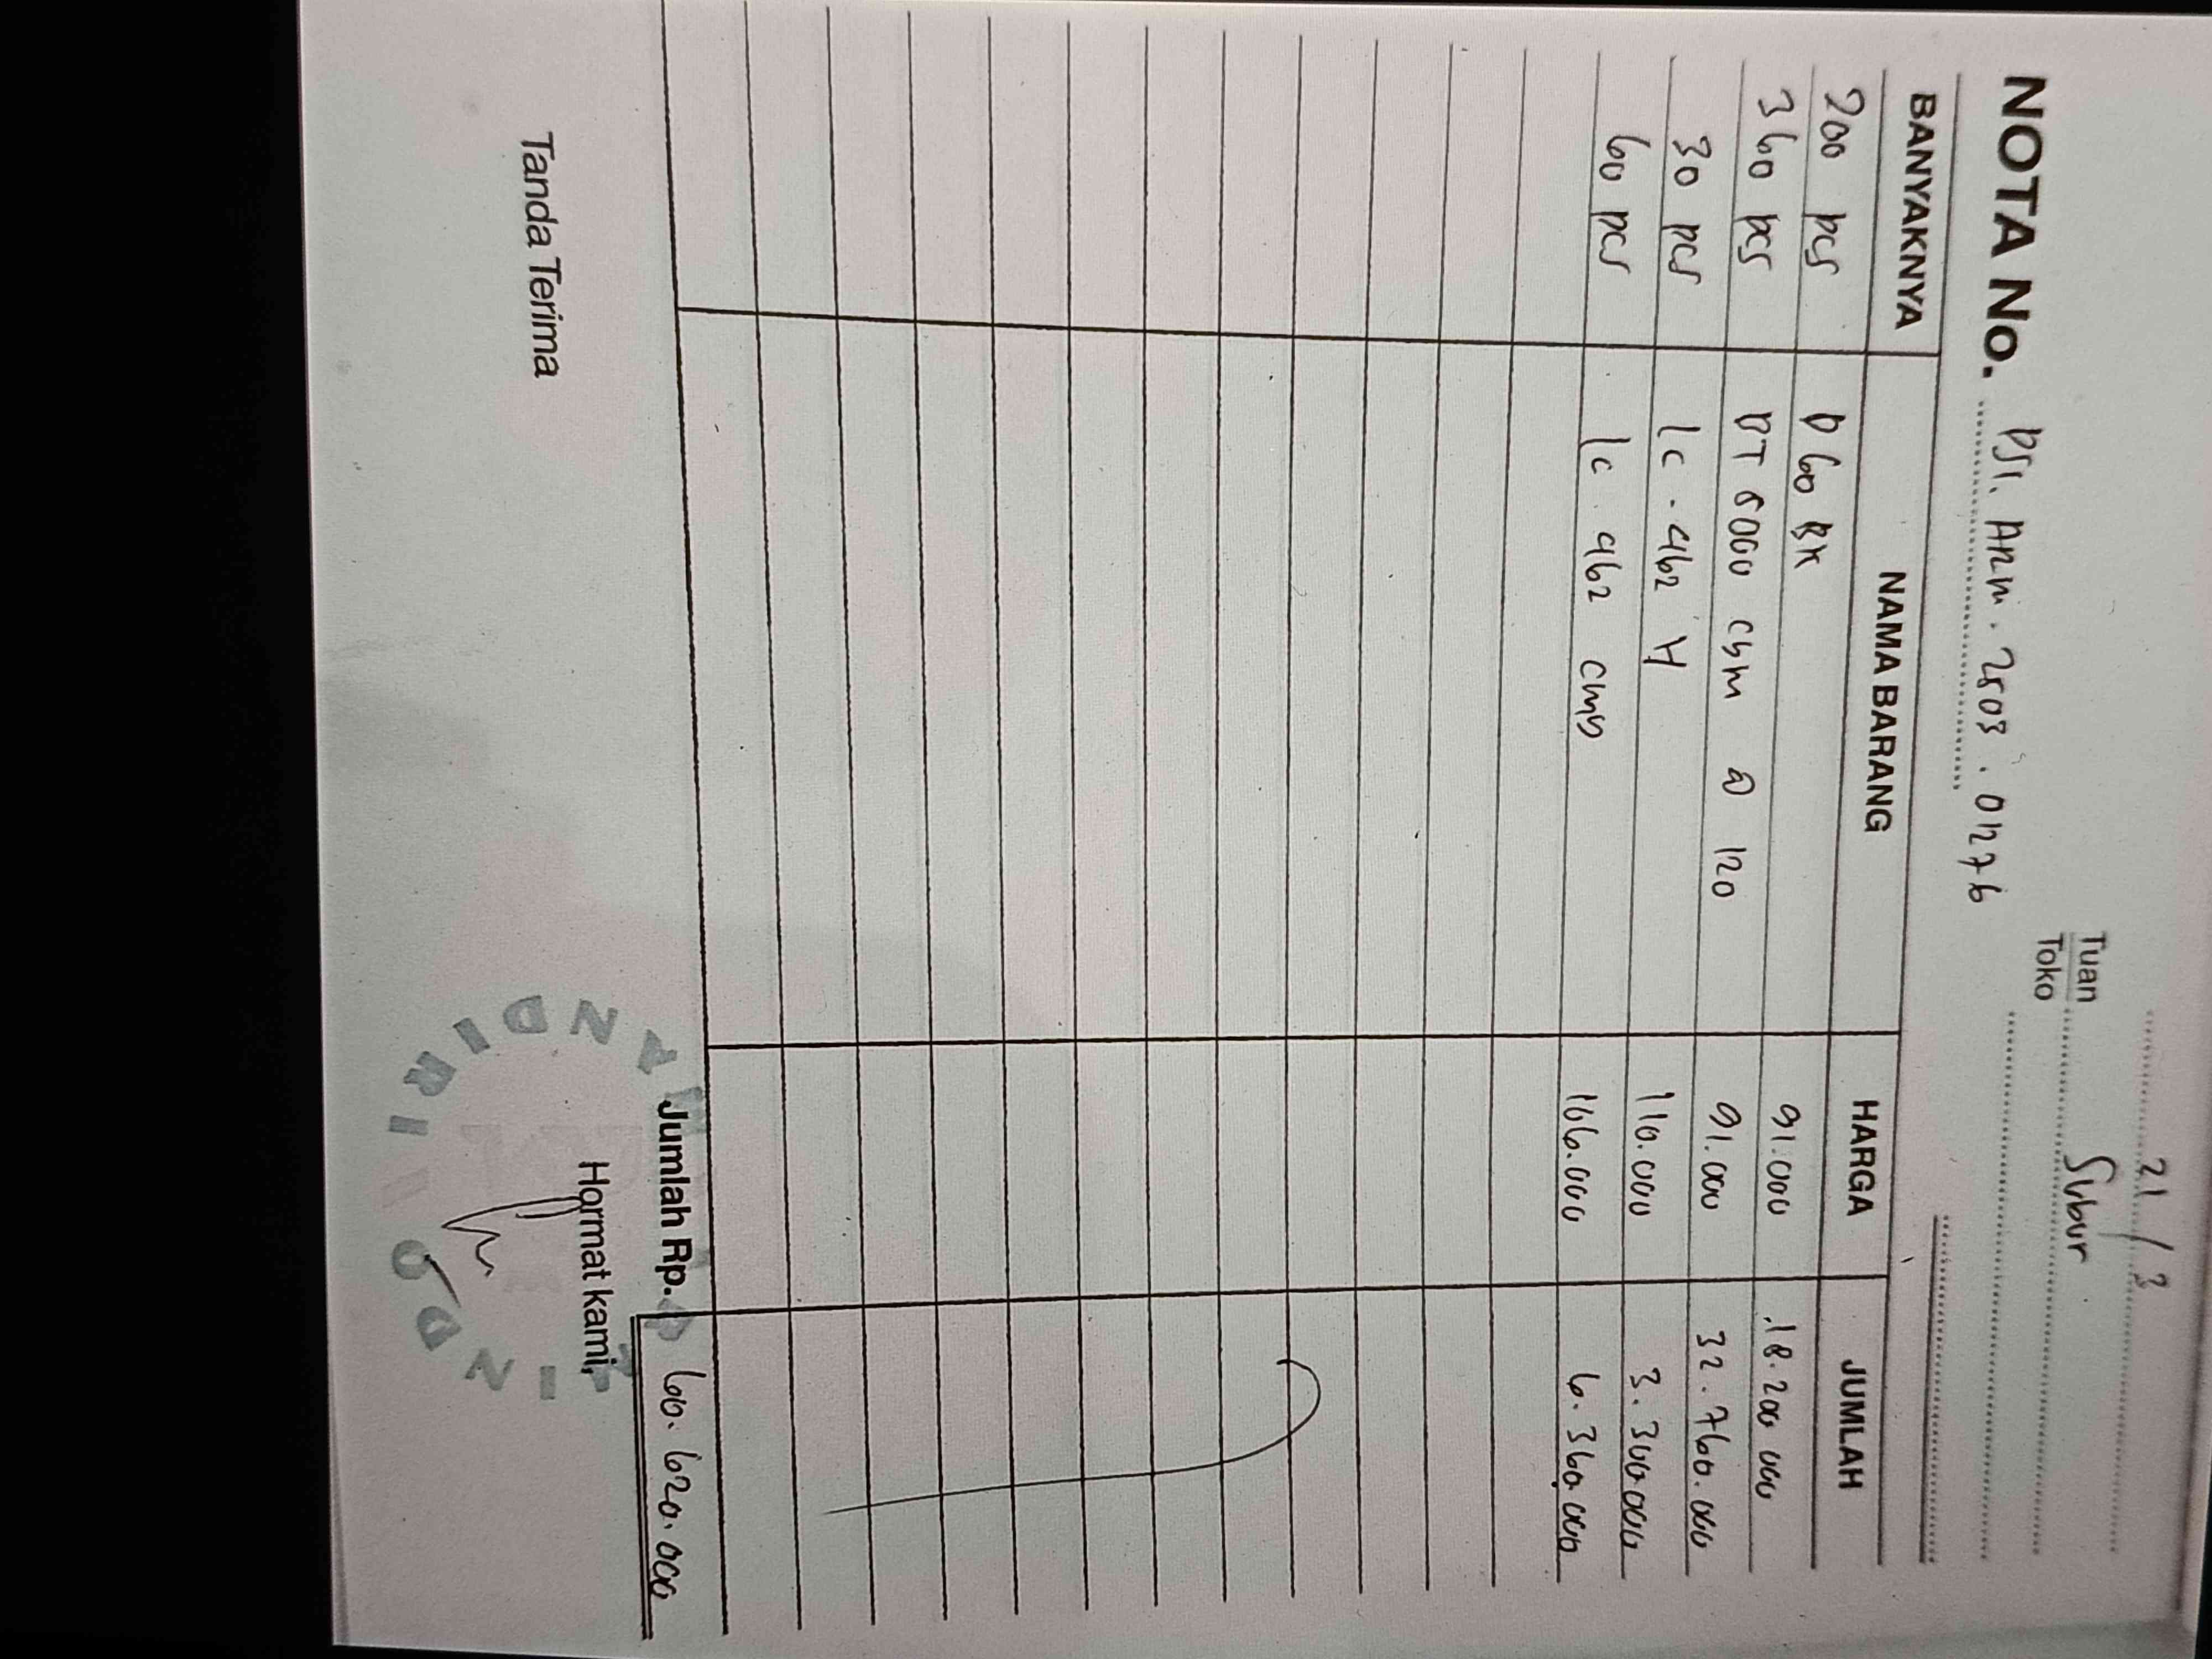 21 / 3
Tuan Subur
Toko
NOTA No. PSI. ARM. 2503. 01276
BANYAKNYA NAMA BARANG HARGA JUMLAH
200 pcs D 60 BK 91.000 18.200 000
360 pcs DT 5000 CBM @ 120 91.000 32.760.000
30 pcs LC - 462 H 110.000 3.300.000
60 pcs LC . 462 CMB 106.000 6.360.000
Jumlah Rp. 60.620.000
Tanda Terima Hormat kami,